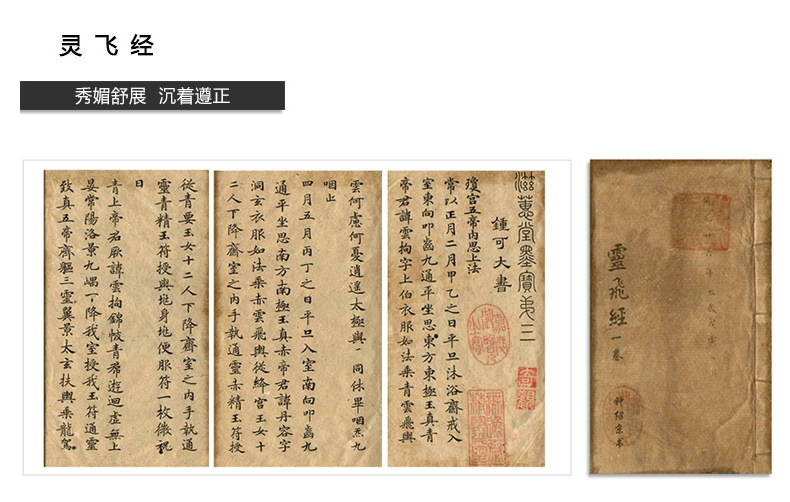 灵飞经
秀媚舒展 沉着遵正
滋蕙堂墨寶弟三
鍾可大書
瓊宮五帝內思上法
常以正月二月甲乙之日平旦沐浴齋戒入
室東向叩齒九通平坐思東方東極玉真青
帝君諱雲拘字上伯衣服如法乘青雲飛輿
雲何慮何憂逍遙太極與一同休畢咽炁九
咽止
四月五月丙丁之日平旦入室南向叩齒九
通平坐思南方南極玉真赤帝君諱丹容字
洞玄衣服如法乘赤雲飛輿從絳宮玉女十
二人下降齋室之內手執通靈赤精玉符授
從青要玉女十二人下降齋室之內手執通
靈青精玉符授與兆身兆便服符一枚微祝
曰
青上帝君厥諱雲拘錦帔青帬遊迴虛無上
晏常陽洛景九嵎下降我室授我玉符通靈
致真五帝齊軀三靈翼景太玄扶輿乘龍駕
靈飛經一卷